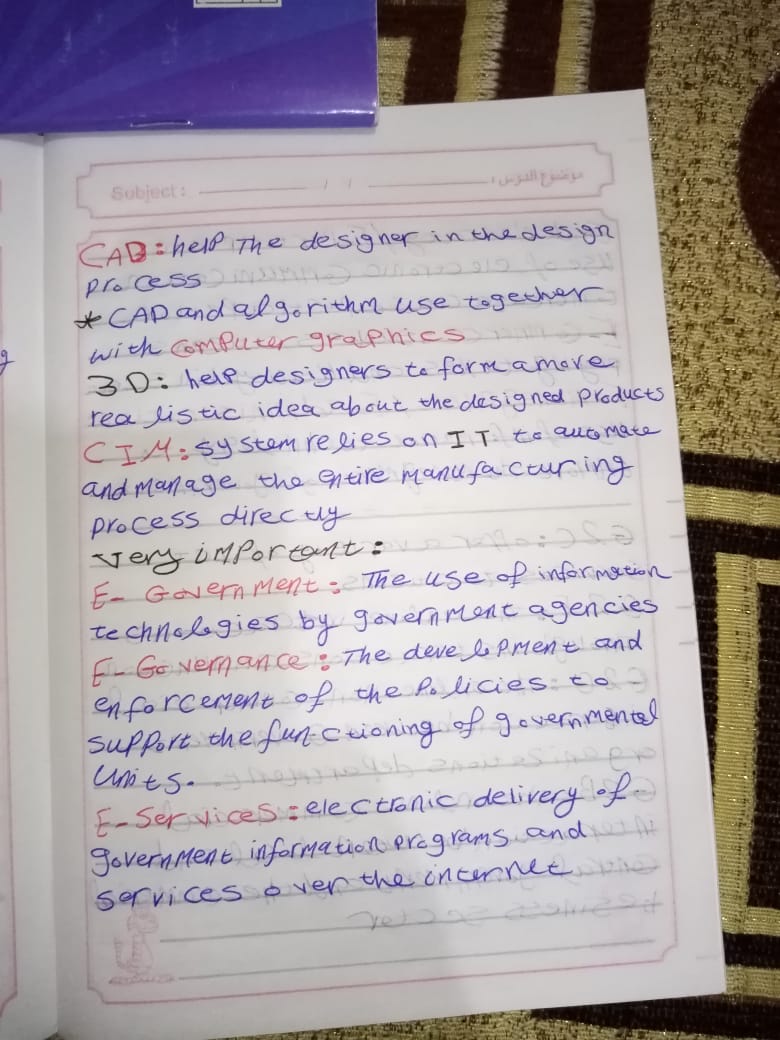 Subject : / / موضوع الدرس :
CAD : help The designer in the design
process
* CAD and algorithm use together
with Computer graphics
3D : help designers to form a more
realistic idea about the designed products
CIM : system relies on IT to automate
and manage the entire manufacturing
process directly
Very important :
E- Government : The use of information
technologies by government agencies
E- Governance : The development and
enforcement of the Policies to
support the functioning of governmental
units.
E- Services : electronic delivery of
government information programs and
services over the internet